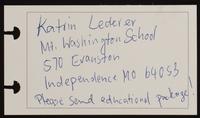 Katrin Lederer
Mt. Washington School
570 Evanston
Independence MO 64053
Please send educational package!